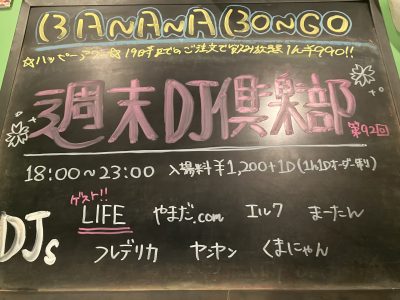 BANANA BONGO
☆ハッピーアワー☆19時までのご注文で飲み放題1h¥990!!
週末DJ倶楽部 第92回
18:00〜23:00 入場料¥1,200+1D(1h1Dオーダー制)
ゲスト!!
DJs
LIFE やまだ.com エルク まーたん
フレデリカ ヤンヤン くまにゃん